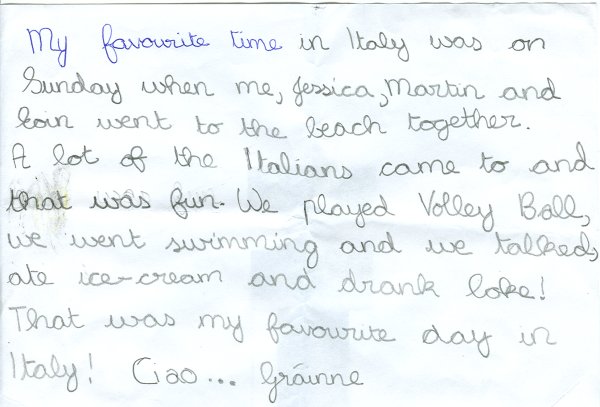 My favourite time in Italy was on
Sunday when me, Jessica, Martin and
Eoin went to the beach together.
A lot of the Italians came to and
that was fun. We played Volley Ball,
we went swimming and we talked,
ate ice-cream and drank Coke!
That was my favourite day in
Italy! Ciao... Gráinne